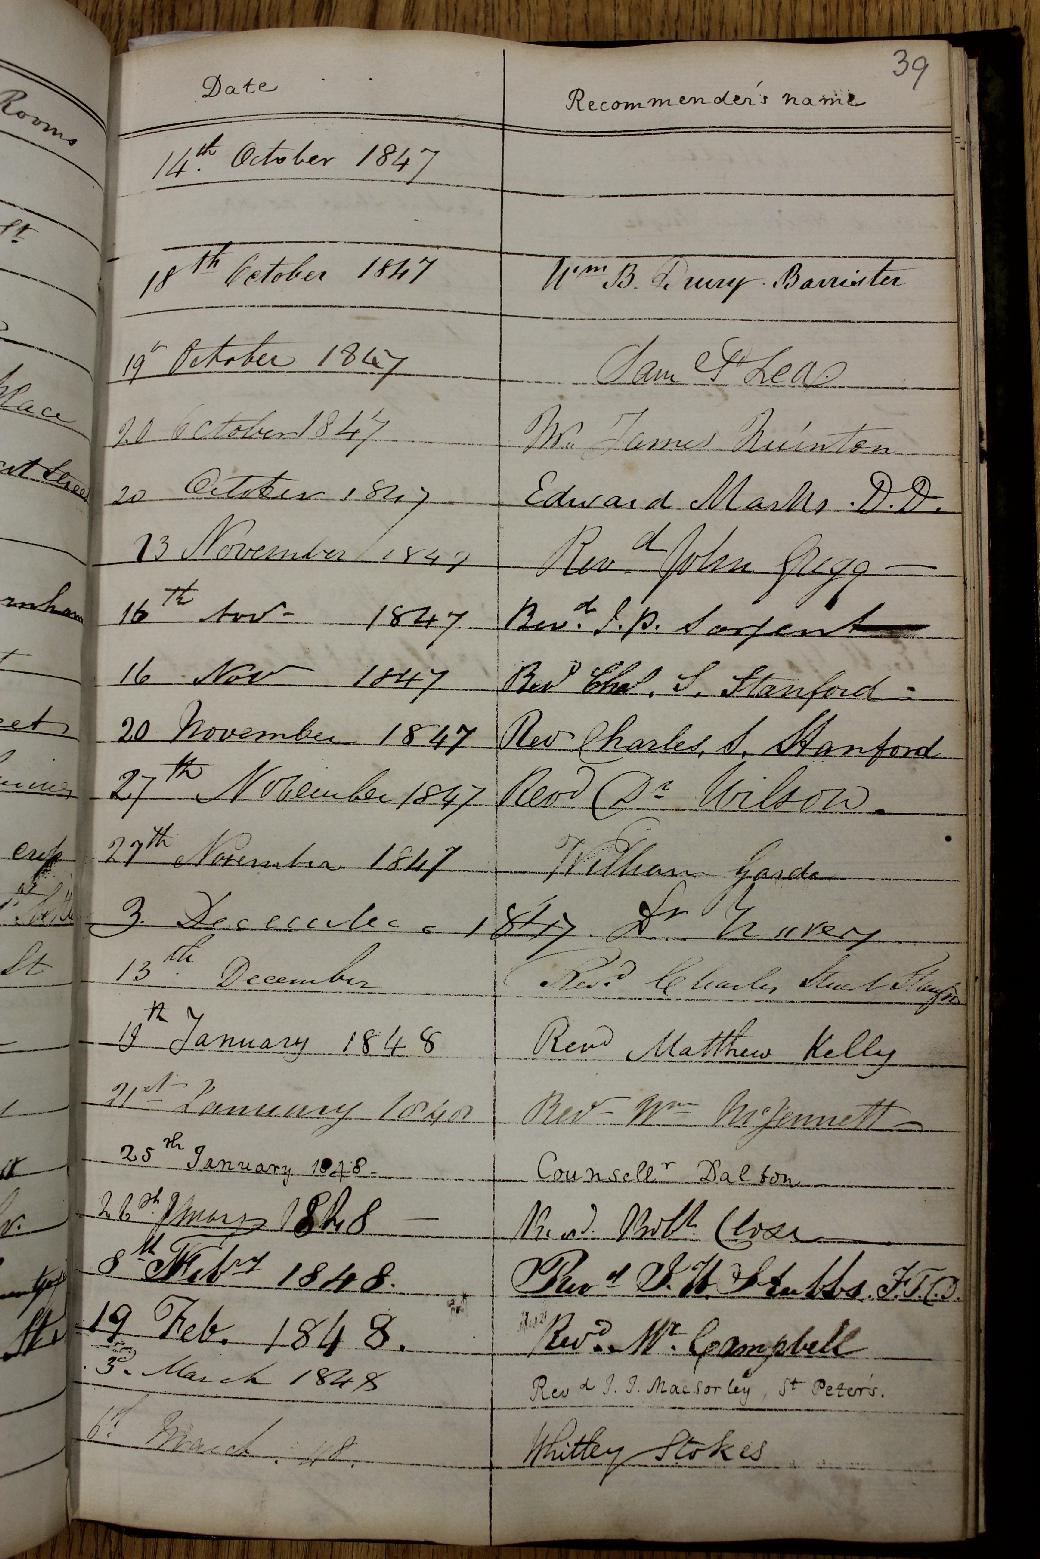 39
Rooms
Date Recommender's name
14th October 1847
St
18th October 1847 Wm B. Drury. Barrister
19th October 1847 Sam
Place
20 October 1847 Mr. James Quinton
Street
20 October 1847 Edward Marks. D.D.
13 November 1847 Revd John Gregg
16th Nov 1847 Revd. J. P. Sargent
16 Nov 1847 Revd Chas. S. Stanford
20 November 1847 Rev Charles. S. Stanford
27th November 1847 Revd Dr Wilson.
27th November 1847 William Garde
3 December 1847 Dr
St
13th December Revd Charles Stuart Stanford
19th January 1848 Revd Matthew Kelly
21st January 1848 Rev Wm
25th January 1848. Counsellr Dalton
1848 Revd. Robt Close
8th Feby 1848. Revd J. W. Stubbs. F.T.C.D.
19 Feb. 1848. Revd. Mr. Campbell
St.
3d. March 1848 Revd J. J. MacSorley, St Peter's.
6th March. 48. Whitley Stokes